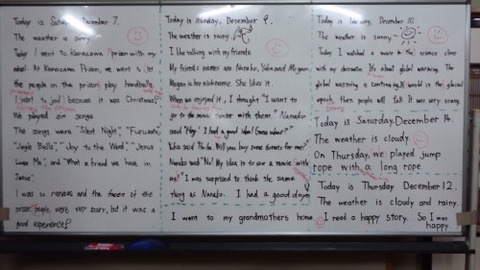 Today is Saturday December 7.
The weather is sunny.
Today I went to Kanazawa prison with my
At Kanazawa Prison, we went to let
the people in the prison play handbells
(went to jail) because it was Christmas?
We played six songs.
The songs were "Silent Night", "Furusato",
"Jingle Bells", "Joy to the World", "Jesus
Loves Me", and "What a friend we have in
Jesus".
I was so nervous and the faces of the
prison people were very scary, but it was a
good experience?
Today is Monday, December 9.
The weather is rainy
I like talking with my friends.
My friend's names are Nanako, Yuka and Megan.
Megan is her nickname. She likes it.
When we enjoyed it, I thought "I want to
go to the movie theater with them." Nanako
said "Hey! I had a good idea! Guess what?"
Yuka said "Nah. Will you buy some dinner for me?"
Nanako said "No! My idea is to see a movie with
me! I was surprised to think the same
thing as Nanako. I had a good day
I went to my grandmothers home.
Today is Tuesday, December 10.
The weather is sunny
Today I watched a movie in the science class
with my It's about global warming. The
global warming is continuing. If world is the glacial
epoch, then people will fall. It was very scary.
Today is Saturday, December 14.
The weather is cloudy
On Thursday, we played jump
rope with a long rope
Today is Thursday December 12.
The weather is cloudy and rainy.
I read a happy story. So I was
happy.